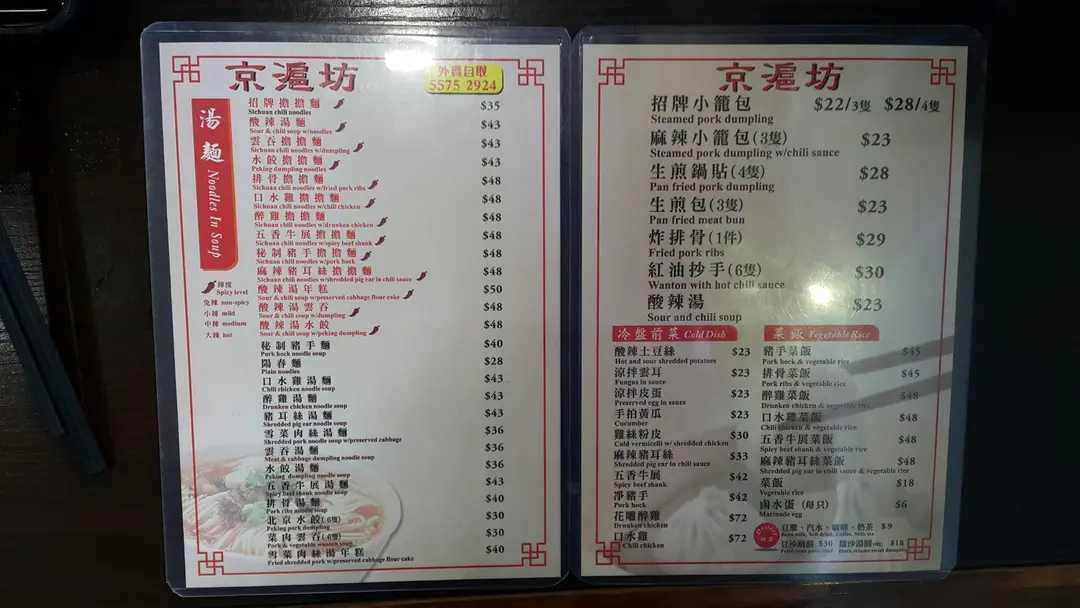 京滬坊
外賣自取
5575 2924
湯麵 Noodles In Soup
招牌擔擔麵 $35
Sichuan chili noodles
酸辣湯麵 $43
Sour & chili soup w/noodles
雲吞擔擔麵 $43
Sichuan chili noodles w/dumpling
水餃擔擔麵 $43
Peking dumpling noodles
排骨擔擔麵 $48
Sichuan chili noodles w/fried pork ribs
口水雞擔擔麵 $48
Sichuan chili noodles w/chili chicken
醉雞擔擔麵 $48
Sichuan chili noodles w/drunken chicken
五香牛展擔擔麵 $48
Sichuan chili noodles w/spicy beef shank
秘制豬手擔擔麵 $48
Sichuan chili noodles w/pork hock
麻辣豬耳絲擔擔麵 $48
Sichuan chili noodles w/shredded pig ear in chili sauce
酸辣湯年糕 $50
Sour & chili soup w/preserved cabbage flour cake
酸辣湯雲吞 $48
Sour & chili soup w/dumpling
酸辣湯水餃 $48
Sour & chili soup w/peking dumpling
辣度
Spicy level
免辣 non-spicy
小辣 mild
中辣 medium
大辣 hot
秘制豬手麵 $40
Pork hock noodle soup
陽春麵 $28
Plain noodles
口水雞湯麵 $43
Chili chicken noodle soup
醉雞湯麵 $43
Drunken chicken noodle soup
豬耳絲湯麵 $43
Shredded pig ear noodle soup
雪菜肉絲湯麵 $36
Shredded pork noodle soup w/preserved cabbage
雲吞湯麵 $36
Meat & cabbage dumpling noodle soup
水餃湯麵 $36
Peking dumpling noodle soup
五香牛展湯麵 $43
Spicy beef shank noodle soup
排骨湯麵 $40
Pork ribs noodle soup
北京水餃(6隻) $30
Peking pork dumpling
菜肉雲吞(6隻) $30
Pork & vegetable wanton soup
雪菜肉絲湯年糕 $40
Fried shredded pork w/preserved cabbage flour cake
京滬坊
招牌小籠包 $22/3隻 $28/4隻
Steamed pork dumpling
麻辣小籠包(3隻) $23
Steamed pork dumpling w/chili sauce
生煎鍋貼(4隻) $28
Pan fried pork dumpling
生煎包(3隻) $23
Pan fried meat bun
炸排骨(1件) $29
Fried pork ribs
紅油抄手(6隻) $30
Wanton with hot chili sauce
酸辣湯 $23
Sour and chili soup
冷盤前菜 Cold Dish
酸辣土豆絲 $23
Hot and sour shredded potatoes
涼拌雲耳 $23
Fungus in sauce
涼拌皮蛋 $23
Preserved egg in sauce
手拍黃瓜 $23
Cucumber
雞絲粉皮 $30
Cold vermicelli w/ shredded chicken
麻辣豬耳絲 $33
Shredded pig ear in chili sauce
五香牛展 $42
Spicy beef shank
凈豬手 $42
Pork hock
花雕醉雞 $72
Drunken chicken
口水雞 $72
Chili chicken
菜飯 Vegetable Rice
豬手菜飯 $45
Pork hock & vegetable rice
排骨菜飯 $45
Pork ribs & vegetable rice
醉雞菜飯 $48
Drunken chicken & vegetable rice
口水雞菜飯 $48
Chili chicken & vegetable rice
五香牛展菜飯 $48
Spicy beef shank & vegetable rice
麻辣豬耳絲菜飯 $48
Shredded pig ear in chili sauce & vegetable rice
菜飯 $18
Vegetable rice
鹵水蛋 (每只) $6
Marinade egg
豆漿、汽水、咖啡、奶茶 $9
Bean milk, Soft drink, Coffee, Milk tea
豆沙鍋餅 $30 擂沙湯圓 $18